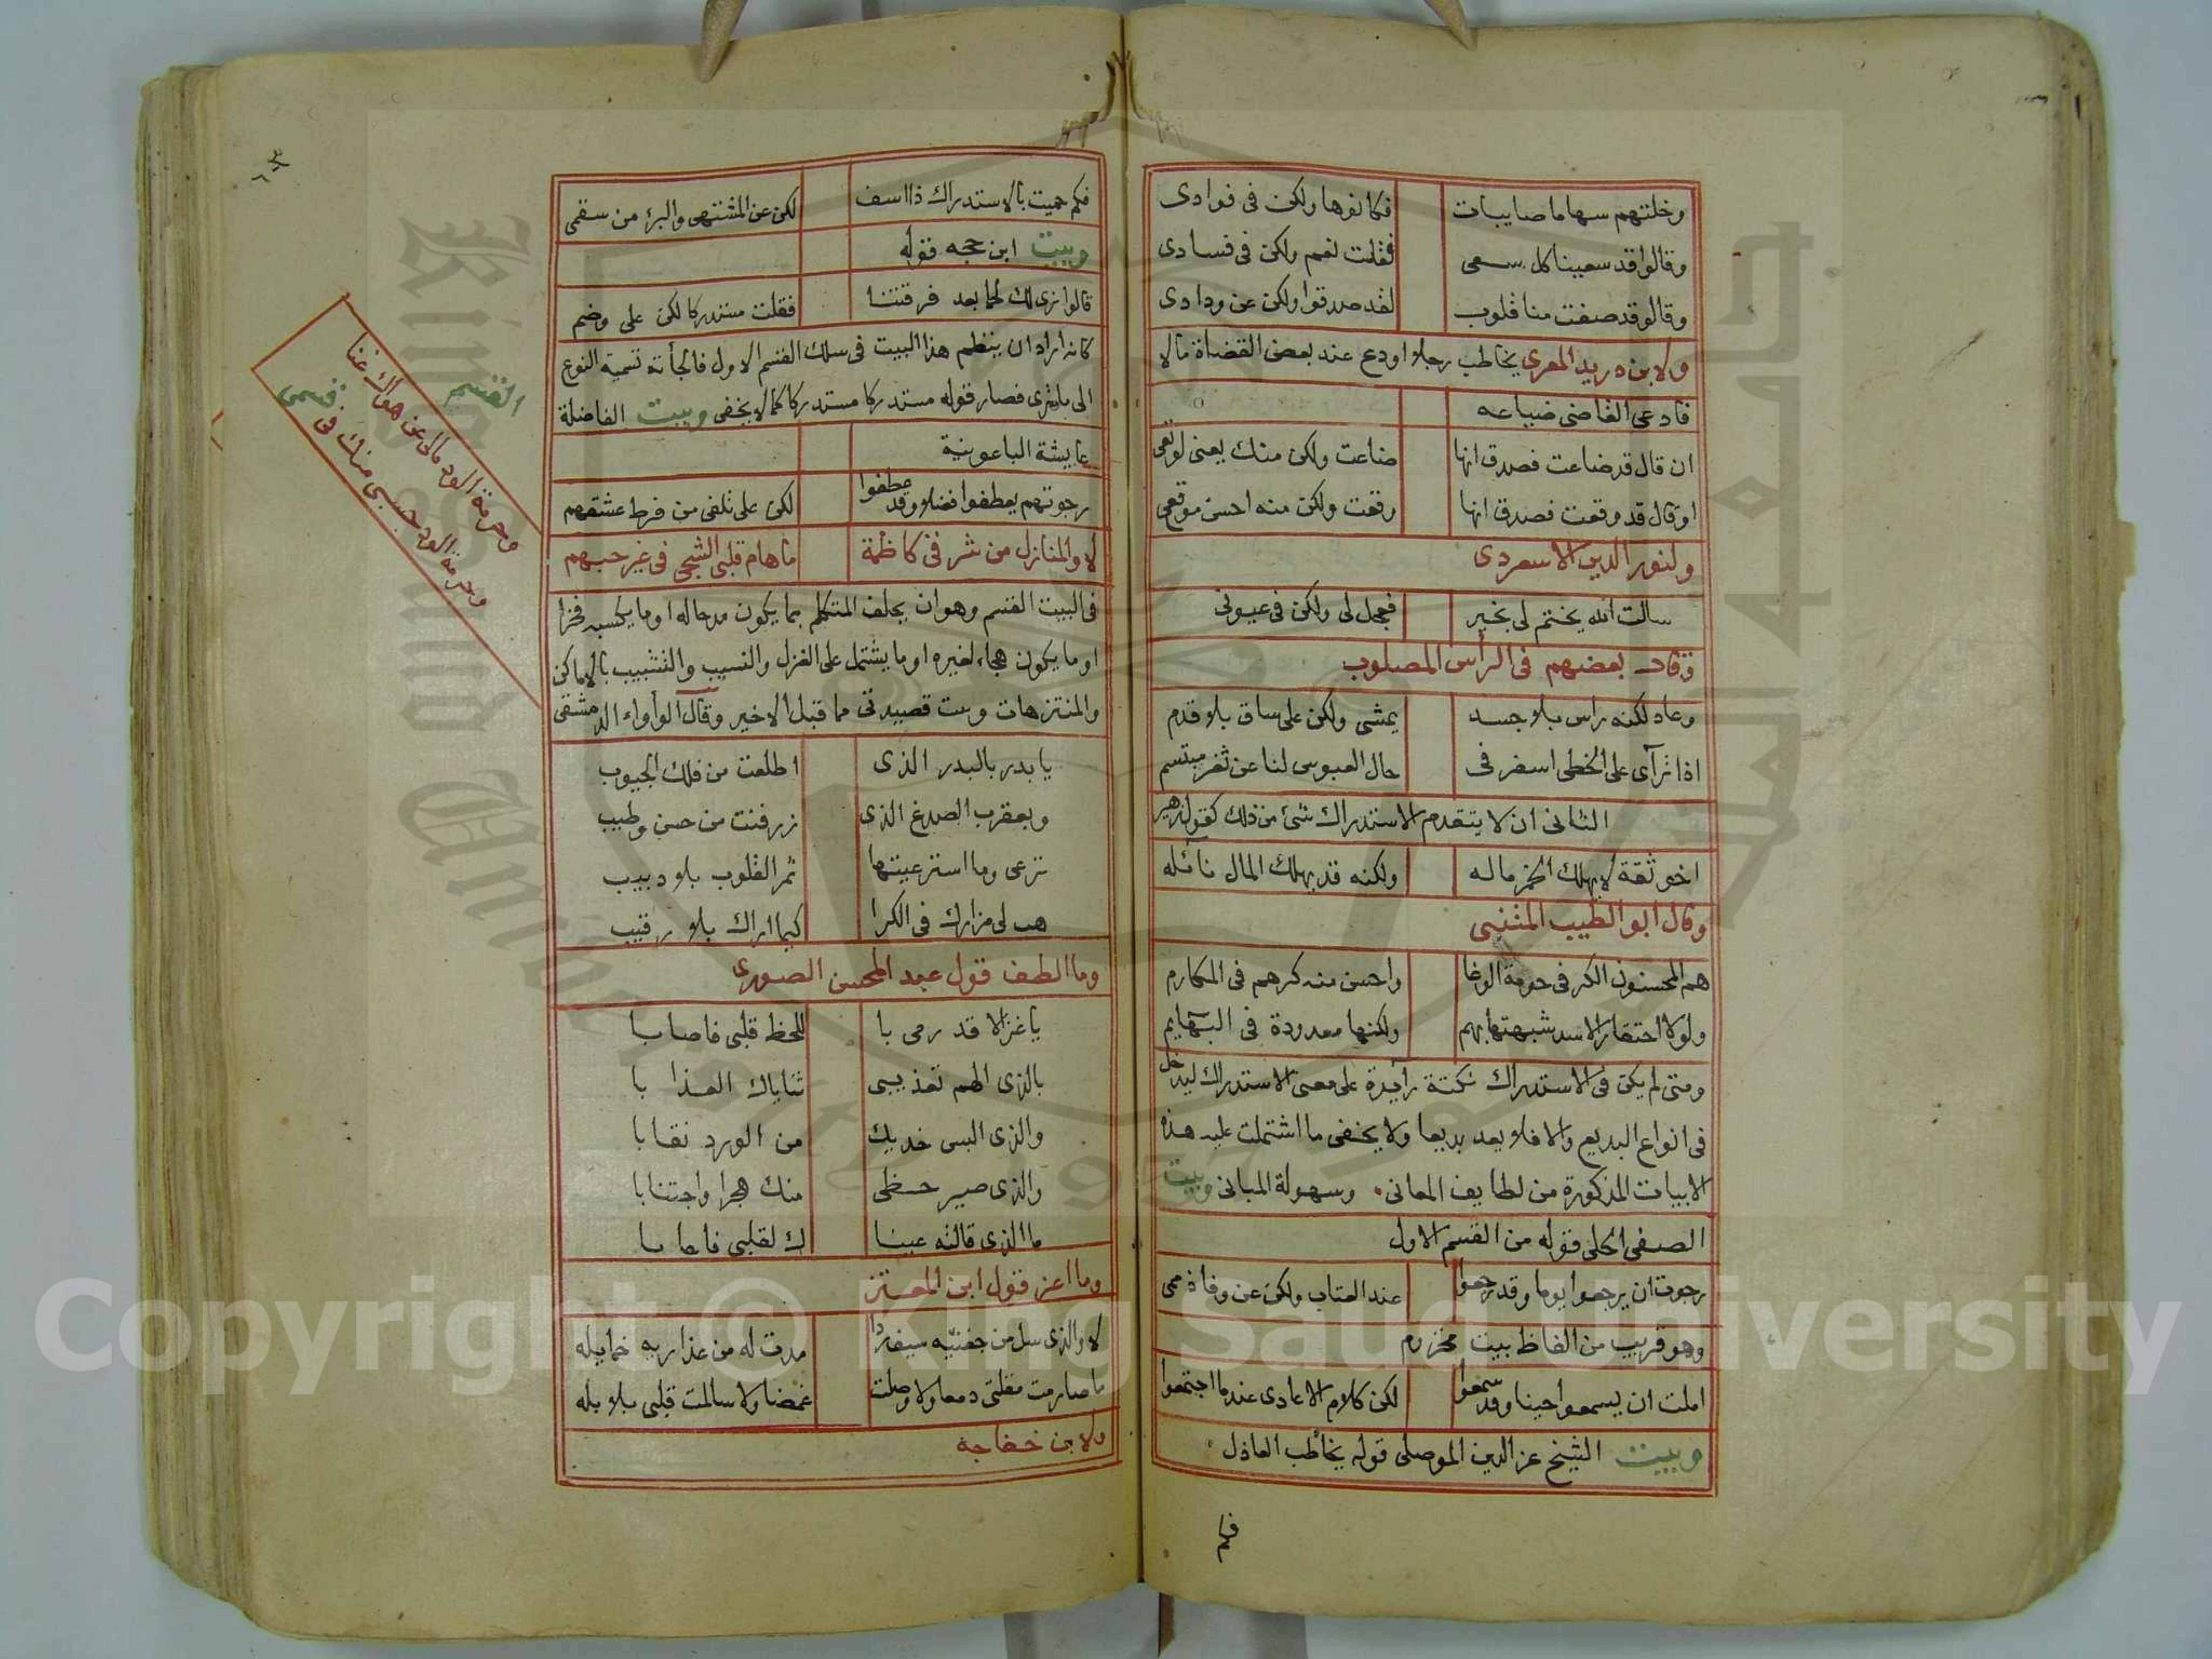 وخلتهم سهاما صايبات فكانوها ولكن في فوادى
وقالوا قد سعينا كل سعى فقلت نعم ولكن في فسادى
وقالو قد صفت منا قلوب لقد صدقوا ولكن عن ودادى
ولابن دريد المعرى يخاطب رجلا اودع عند بعض القضاة مالا
فادعى القاضى ضياعه
ان قال قد ضاعت فصدق انها ضاعت ولكن منك يعنى لو تعى
اوقال قد وقعت فصدق انها وقعت ولكن منه احسن موقعى
ولنور الدين الاسعردى
سالت الله يختم لى بخير فعجل لى ولكن في عيونى
وقال بعضهم في الرأس المصلوب
وعاد لكنه راس بلا جسد يمشى ولكن على ساق بلا قدم
اذا ترآى على الخطى اسفر في حال العبوس لنا عن ثغر مبتسم
الثانى ان لا يتقدم الاستدراك شئ من ذلك كقول زهير
اخو ثقة لا يهلك الخمر ماله ولكنه قد يهلك المال نائله
وقال ابو الطيب المتنبى
هم المحسنون الكر في حومة الوغا واحسن منه كرهم في المكارم
ولولا احتقار الاسد شبهتها بهم ولكنها معدودة في البهايم
ومتى لم يكن في الاستدراك نكتة زايدة على معنى الاستدراك ليدخل
في انواع البديع والا فلا يعد بديعا ولا يخفى ما اشتملت عليه هذه
الابيات المذكورة من لطايف المعانى وسهولة المبانى وبيت
الصفى الحلى قوله من القسم الاول
رجوت ان يرجعوا يوما وقد رجعوا عند العتاب ولكن عن وفا ذممى
وهو قريب من الفاظ بيت مخزوم
املت ان يسمعوا حينا وقد سمعوا لكن كلام الاعادى عندما اجتمعوا
وبيت الشيخ عز الدين الموصلى قوله يخاطب العاذل
فكم
فكم حميت بالاستدراك ذا اسف لكن عن المشتهى والبرء من سقمى
وبيت ابن حجه قوله
قالوا نرى لك لحما بعد فرقتنا فقلت مستدركا لكن على وضم
كانه اراد ان ينظم هذا البيت في سلك القسم الاول فالجأته تسمية النوع
الى ما ترى فصار قوله مستدركا مستدركا كما لا يخفى وبيت الفاضلة
عايشة الباعونية
رجوتهم يعطفوا فضلا وقد عطفوا لكن على تلفى من فرط عشقهم
لا والمنازل من شرقى كاظمة ما هام قلبى الشجى في غير حبهم
في البيت القسم وهو ان يحلف المتكلم بما يكون مدحا له او ما يكسبه فخرا
او ما يكون هجاء لغيره او ما يشتمل على الغزل والنسيب والتشبيب بالاماكن
والمنتزهات وبيت قصيدتى مما قبل الاخير وقال الوأواء الدمشقى
يا بدر بالبدر الذى اطلعت من فلك الجيوب
وبعقرب الصدغ الذى زرفنت من حسن وطيب
ترعى وما استرعيتها ثمر القلوب بلا دبيب
هب لى مزارك في الكرا كيما اراك بلا رقيب
وما الطف قول عبد المحسن الصورى
يا غزالا قد رمى با للحظ قلبى فاصابا
بالذى الهم تعذيبى ثناياك العذابا
والذى البس خديك من الورد نقابا
والذى صير حظى منك هجرا واجتنابا
ما الذى قالته عينا ك لقلبى فاجابا
وما اعز قول ابن المعتز
لا والذى سل من جفنيه سيف ردا مدت له من عذاريه خمايله
ما صارمت مقلتى دمعا ولا وصلت غمضا ولا سالمت قلبى بلابله
ولابن خفاجة
القسم
وحرمة الود مالى عن هواك غنا
وحرمة الود حسبى منك في قسمى